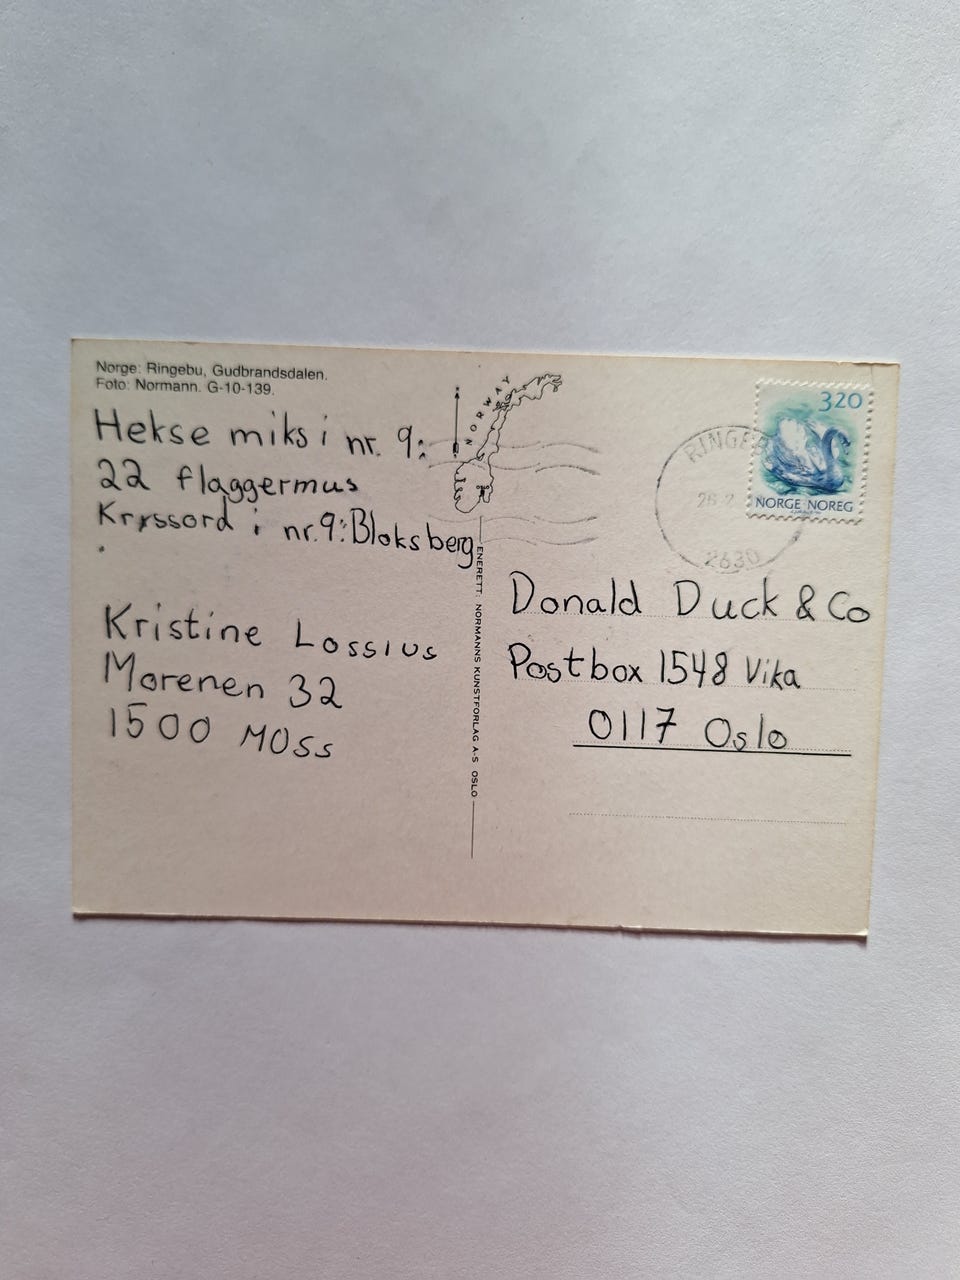 Norge: Ringebu, Gudbrandsdalen.
Foto: Normann. G-10-139.
Hekse miks i nr. 9:
22 flaggermus
Kryssord i nr. 9: Bloksberg
Kristine Lossius
Morenen 32
1500 MOSS
NORWAY
ENERETT: NORMANNS KUNSTFORLAG A-S OSLO
320
NORGE NOREG
2630
Donald Duck & Co
Postbox 1548 Vika
0117 Oslo